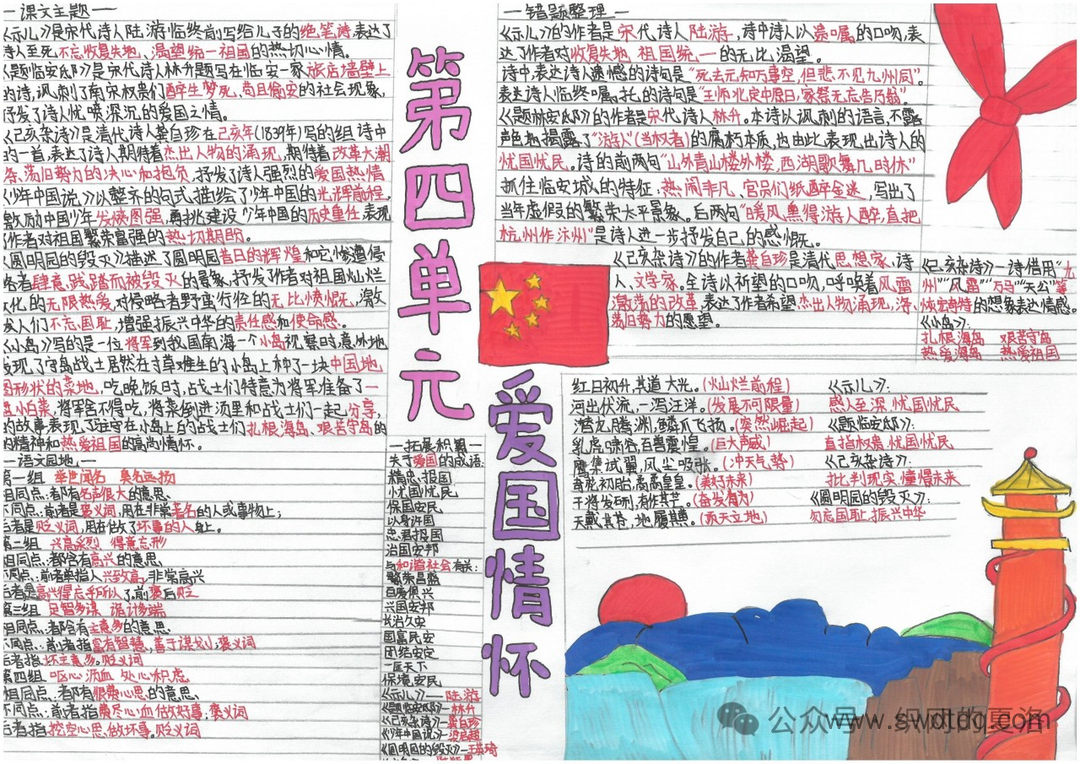 课文主题
《示儿》是宋代诗人陆游临终前写给儿子的绝笔诗,表达了
诗人至死不忘收复失地、渴望统一祖国的热切心情。
《题临安邸》是宋代诗人林升题写在临安一家旅店墙壁上
的诗,讽刺了南宋权贵们醉生梦死、苟且偷安的社会现象,
抒发了诗人忧愤深沉的爱国之情。
《己亥杂诗》是清代诗人龚自珍在己亥年(1839年)写的组诗中
的一首,表达了诗人期待着杰出人物的涌现,期待着改革大潮
荡旧势力的决心和抱负,抒发了诗人强烈的爱国热情
《少年中国说》以整齐的句式,描绘了少年中国的光辉前程,
激励中国少年发愤图强,勇挑建设少年中国的历史重任,表现
作者对祖国繁荣富强的热切期盼。
《圆明园的毁灭》描述了圆明园昔日的辉煌和它惨遭侵
略者肆意践踏而被毁灭的景象,抒发作者对祖国灿烂
文化的无限热爱,对侵略者野蛮行径的无比愤恨,激
发人们不忘国耻,增强振兴中华的责任感和使命感。
《小岛》写的是一位将军到我国南海一个小岛视察时,意外地
发现了守岛战士居然在寸草难生的小岛上种了一块中国地
图形状的菜地,吃晚饭时,战士们特意为将军准备了一
盘小白菜,将军舍不得吃,将菜倒进汤里和战士们一起分享,
的故事表现了驻守在小岛上的战士们扎根海岛、艰苦守岛的
的精神和热爱祖国的高尚情怀。
语文园地
第一组 举世闻名 臭名远扬
相同点:都有名声很大的意思。
不同点:前者是褒义词,用在非常著名的人或事物上;
后者是贬义词,用在做了坏事的人身上。
第二组 兴高采烈 得意忘形
相同点:都含有高兴的意思
不同点:前者单指人兴致高,非常高兴
后者是高兴得忘乎所以了,前褒后贬
第三组 足智多谋 诡计多端
相同点:都含有主意多的意思
不同点:前者指富有智慧,善于谋划;褒义词
后者指坏主意多。贬义词
第四组 呕心沥血 处心积虑
相同点:都有很费心思的意思、
不同点:前者指费尽心血做好事,褒义词
后者指挖空心思,做坏事。贬义词
第四单元
爱国情怀
拓展积累
关于爱国的成语:
精忠报国
忧国忧民
保国安民
以身许国
忠君报国
治国安邦
与和谐社会有关:
繁荣昌盛
百废俱兴
兴国安邦
长治久安
国富民安
团结安定
一匡天下
保境安民
《示儿》—陆游
《题临安邸》—林升
《己亥杂诗》—龚自珍
《少年中国说》—梁启超
《圆明园的毁灭》—王英琦
错题整理
《示儿》的作者是宋代诗人陆游,诗中诗人以遗嘱的口吻,表
达了作者对收复失地 祖国统一的无比渴望。
诗中,表达诗人遗憾的诗句是“死去元知万事空,但悲不见九州同”。
表达诗人临终嘱托的诗句是“王师北定中原日,家祭无忘告乃翁”。
《题林安邸》的作者是宋代诗人林升。本诗以讽刺的语言,不露
声色地揭露了“游人”(当权者)的腐朽本质,也由此表现出诗人的
忧国忧民。诗的前两句“山外青山楼外楼,西湖歌舞几时休”
抓住临安城的特征:热闹非凡、官员们纸醉金迷,写出了
当年虚假的繁荣太平景象。后两句“暖风熏得游人醉,直把
杭州作汴州”是诗人进一步抒发自己的感慨。
《己亥杂诗》的作者龚自珍是清代思想家、诗
人、文学家。全诗以祈望的口吻,呼唤着风雷
激荡的改革,表达了作者希望杰出人物涌现,涤
荡旧势力的愿望。
《己亥杂诗》一诗借用“九
州”“风雷”“万马”“天公”等
恢宏奇特的想象表达情感。
《小岛》:
扎根海岛 艰苦守岛
热爱海岛 热爱祖国
红日初升,其道大光。(灿烂前程)
河出伏流,一泻汪洋。(发展不可限量)
潜龙腾渊,鳞爪飞扬。(突然崛起)
乳虎啸谷,百兽震惶。(巨大声威)
鹰隼试翼,风尘吸张。(冲天气势)
奇花初胎,矞矞皇皇。(美好未来)
干将发硎,有作其芒。(奋发有为)
天戴其苍,地履其黄。(顶天立地)
《示儿》:
感人至深,忧国忧民
《题临安邸》:
直指权贵,忧国忧民
《己亥杂诗》:
批判现实,憧憬未来
《圆明园的毁灭》:
勿忘国耻,振兴中华